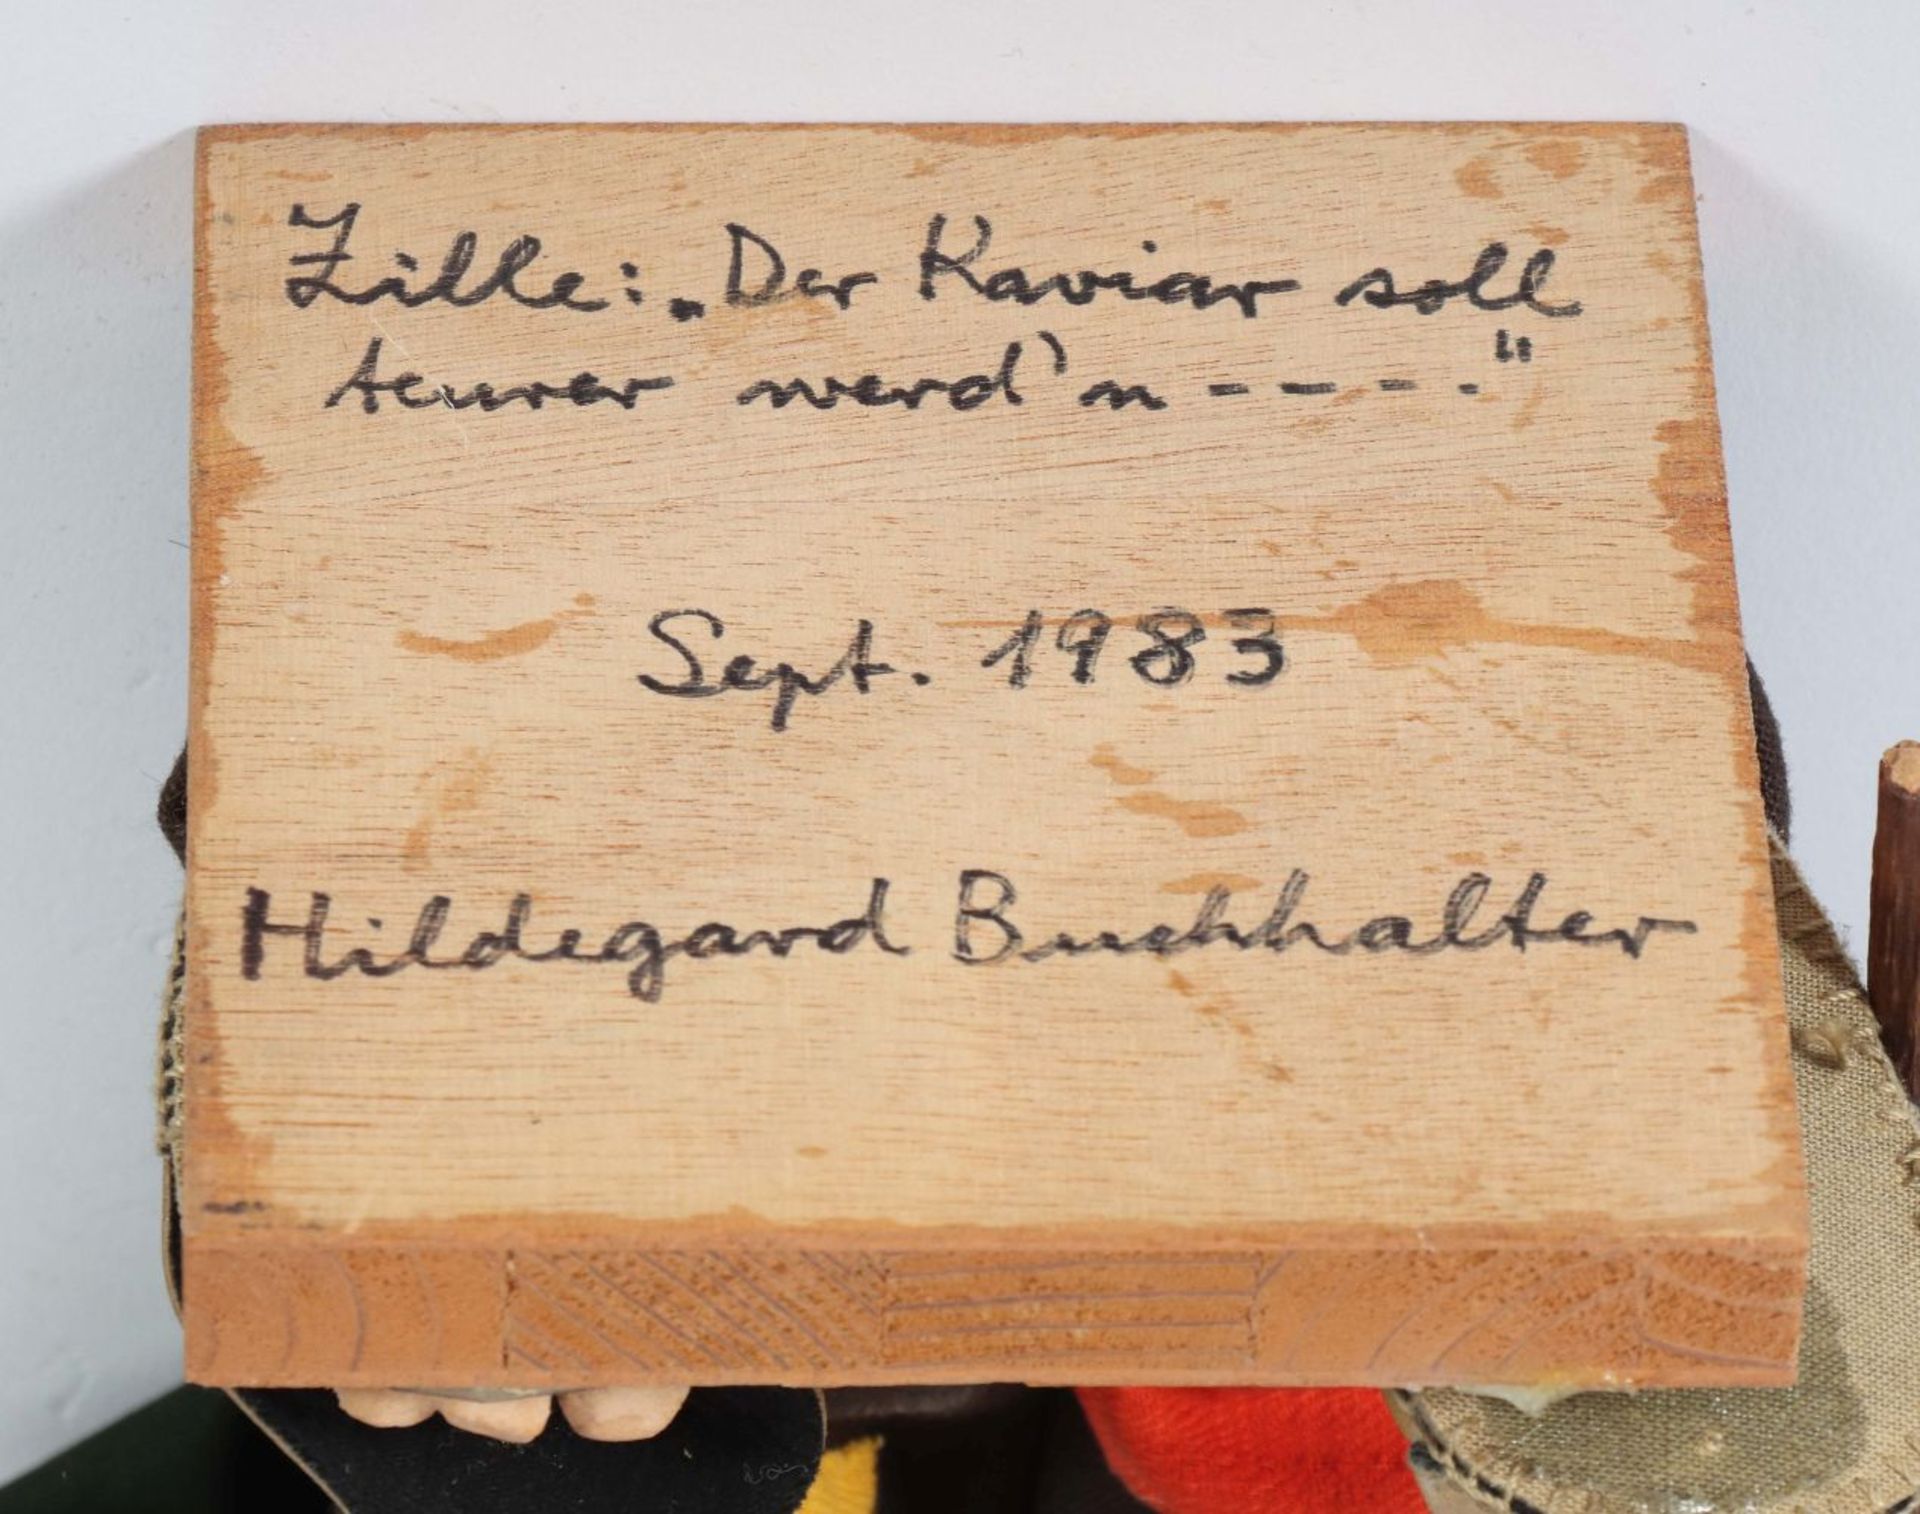 Zille: „Der Kaviar soll
teurer werd'n - - - -."
Sept. 1983
Hildegard Buchhalter